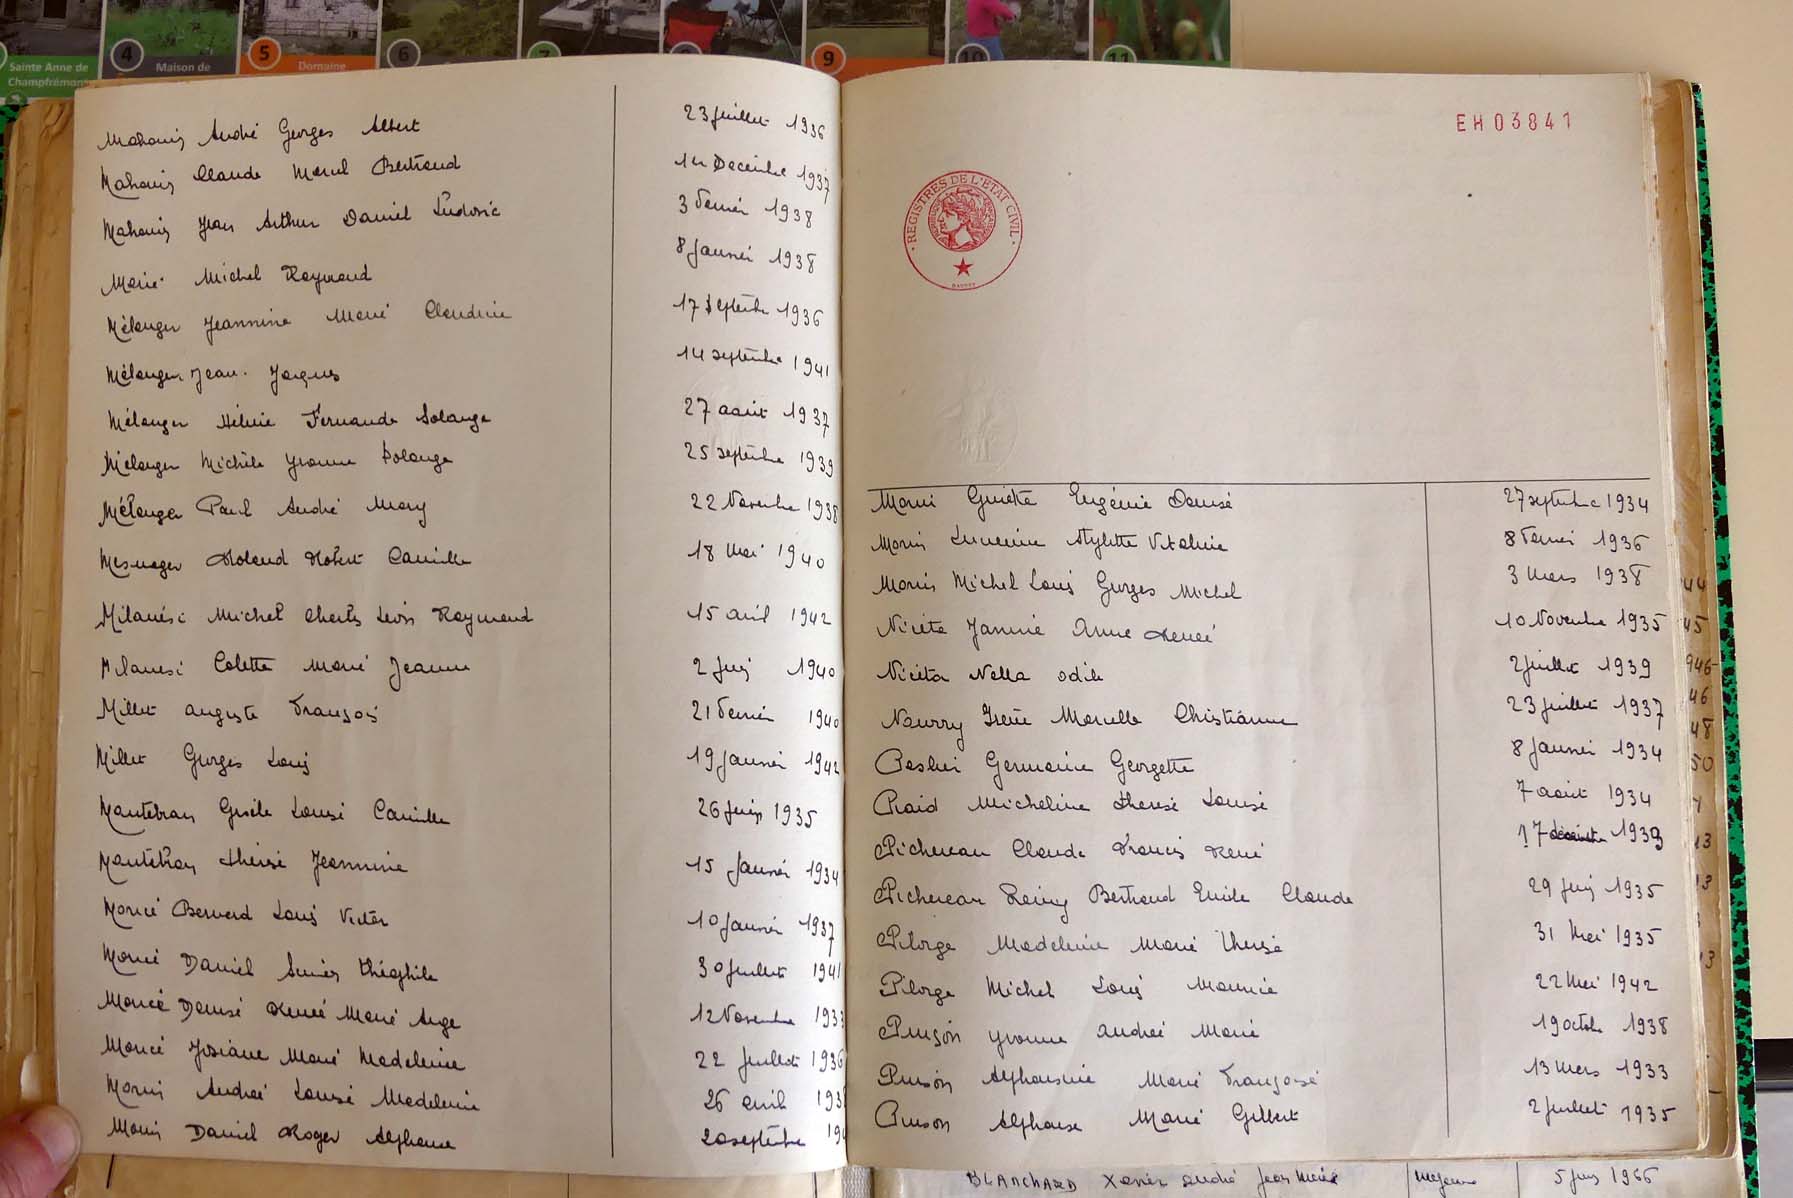 4
5
6
7
8
9
10
11
Sainte Anne de
Champfrémont
Maison de
Domaine
Mahouin André Georges Albert 23 juillet 1936
Mahouin Claude Marcel Bertrand 14 Decembre 1937
Mahouin Jean Arthur Daniel Ludovic 3 Fevrier 1938
Marie Michel Raymond 8 Janvier 1938
Mélanger Jeannine Marie Claudine 17 Septembre 1936
Mélanger Jean-Jacques 14 septembre 1941
Mélanger Hélène Fernande Solange 27 août 1937
Mélanger Michèle Yvonne Solange 25 septembre 1939
Mélanger Paul André Mary 22 Novembre 1938
Mesnager Roland Robert Camille 18 Mai 1940
Milanési Michel Charles Léon Raymond 15 avril 1942
Milanesi Colette Marie Jeanne 2 Juin 1940
Millet Auguste François 21 Fevrier 1940
Millet Georges Louis 19 Janvier 1942
Montebran Gisèle Louise Camille 26 Juin 1935
Montebran Thérèse Jeannine 15 Janvier 1934
Moricé Bernard Louis Victor 10 Janvier 1937
Moricé Daniel Théophile 30 Juillet 1941
Moricé Denise Renée Marie Ange 12 Novembre 1933
Moricé Josiane Marie Madeleine 22 Juillet 1936
Morin Andrée Louise Madeleine 26 avril 193
Morin Daniel Roger Alphonse 20 septembre 194
EH03841
REGISTRES DE L'ETAT CIVIL
Morin Ginette Eugénie Denise 27 septembre 1934
Morin Lucienne Vitaline 8 Fevrier 1936
Morin Michel Louis Georges Michel 3 Mars 1938
Niceta Janine Anne Renée 10 Novembre 1935
Niceta Nella Odile 2 Juillet 1939
Nourry Irène Marcelle Christianne 23 Juillet 1937
Germaine Georgette 8 Janvier 1934
Micheline Therese Louise 7 août 1934
Pichereau Claude Francis René 17 1933
Pichereau Rémy Bertrand Emile Claude 29 Juin 1935
Pilorge Madeleine Marie Therese 31 Mai 1935
Pilorge Michel Louis Maurice 22 Mai 1942
Pinson Yvonne Andrée Marie 19 octobre 1938
Pinson Alphonsine Marie Françoise 13 Mars 1933
Pinson Alphonse Marie Gilbert 2 Juillet 1935
44
45
946
46
48
50
13
13
13
BLANCHARD Xavier André Jean Marie Mayenne 5 Juin 1966